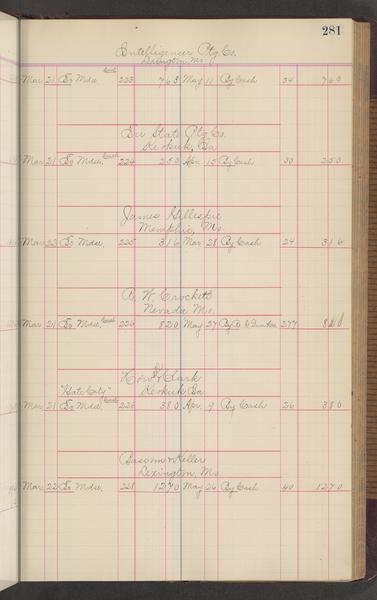 281
Intelligencer Ptg Co.
Lexington Mo.
Mar 21 To Mdse. 223 763 May 11 By Cash 34 763
Tri State Ptg Co.
Keokuk, Ia
Mar 21 To Mdse. 224 250 Apr. 15 By Cash 30 250
James Gillespie
Memphis, Mo.
Mar 22 To Mdse. 225 316 Mar 28 By Cash 24 316
A. W. Crockett
Nevada Mo.
Mar 21 To Mdse. 226 820 May 27 By 277 820
Clark
"Gate City" Keokuk Ia
Mar 21 To Mdse. 226 380 Apr. 9 By Cash 26 380
& Keller
Lexington, Mo
Mar 22 To Mdse. 228 1270 May 26 By Cash 40 1270